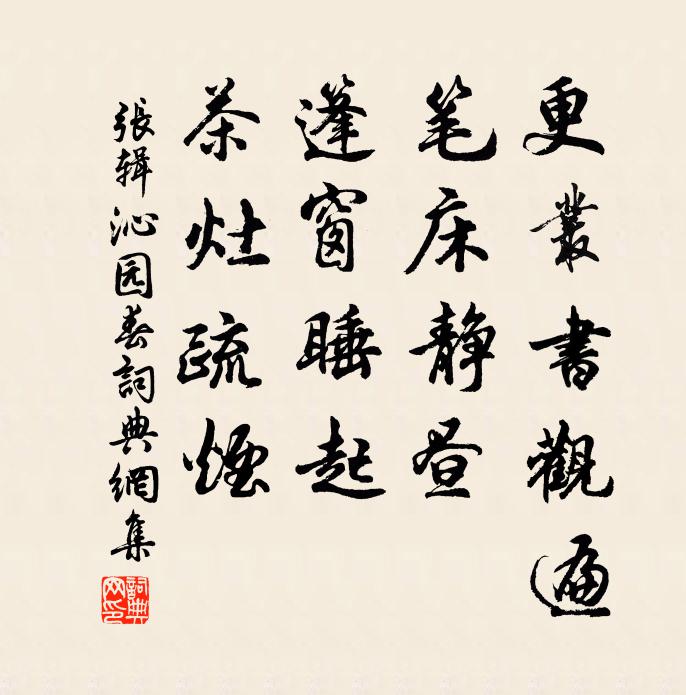 更叢書觀遍
笔床静昼
篷窗睡起
茶灶疏煙
張辑沁园春詞典網集
詞典网印